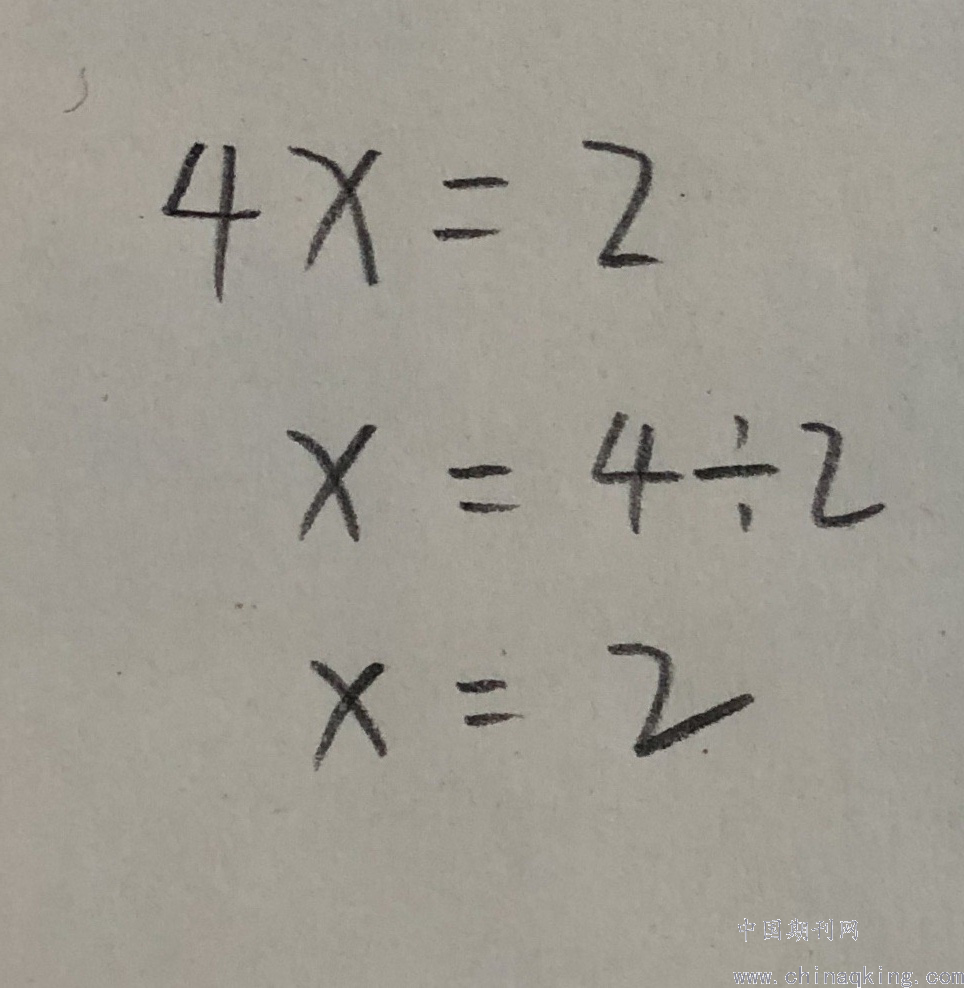 4x = 2
x = 4÷2
x = 2
中国期刊网
www.chinaqking.com